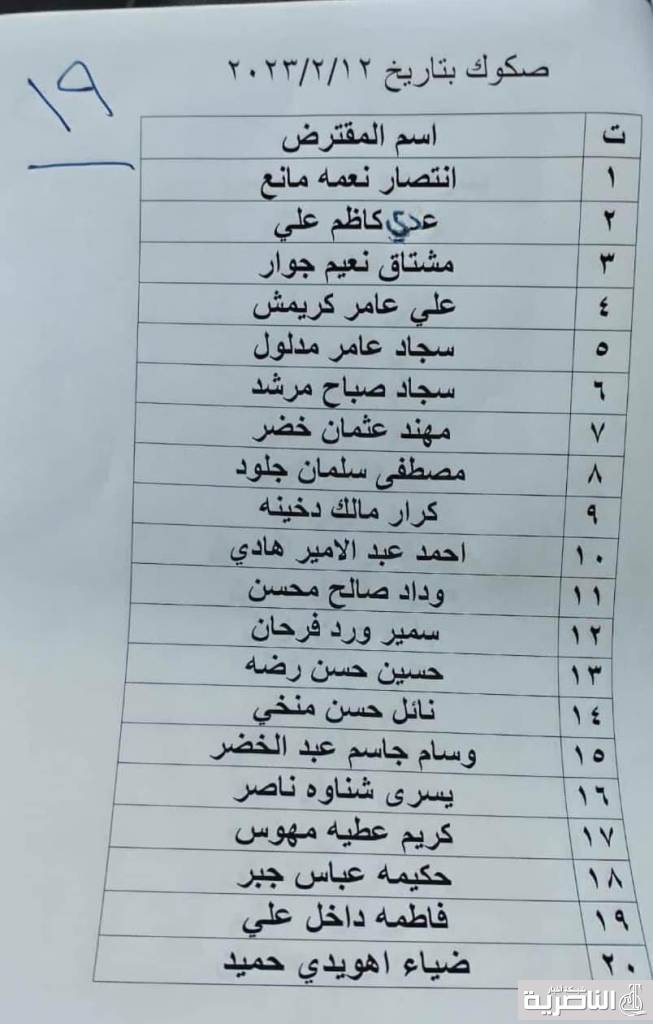 صكوك بتاريخ ٢٠٢٣/٢/١٢
١٩
ت اسم المقترض
١ انتصار نعمه مانع
٢ عدي كاظم علي
٣ مشتاق نعيم جوار
٤ علي عامر كريمش
٥ سجاد عامر مدلول
٦ سجاد صباح مرشد
٧ مهند عثمان خضر
٨ مصطفى سلمان جلود
٩ كرار مالك دخينه
١٠ احمد عبد الامير هادي
١١ وداد صالح محسن
١٢ سمير ورد فرحان
١٣ حسين حسن رضه
١٤ نائل حسن منخي
١٥ وسام جاسم عبد الخضر
١٦ يسرى شناوه ناصر
١٧ كريم عطيه مهوس
١٨ حكيمه عباس جبر
١٩ فاطمه داخل علي
٢٠ ضياء اهويدي حميد
شبكة أخبار
الناصرية